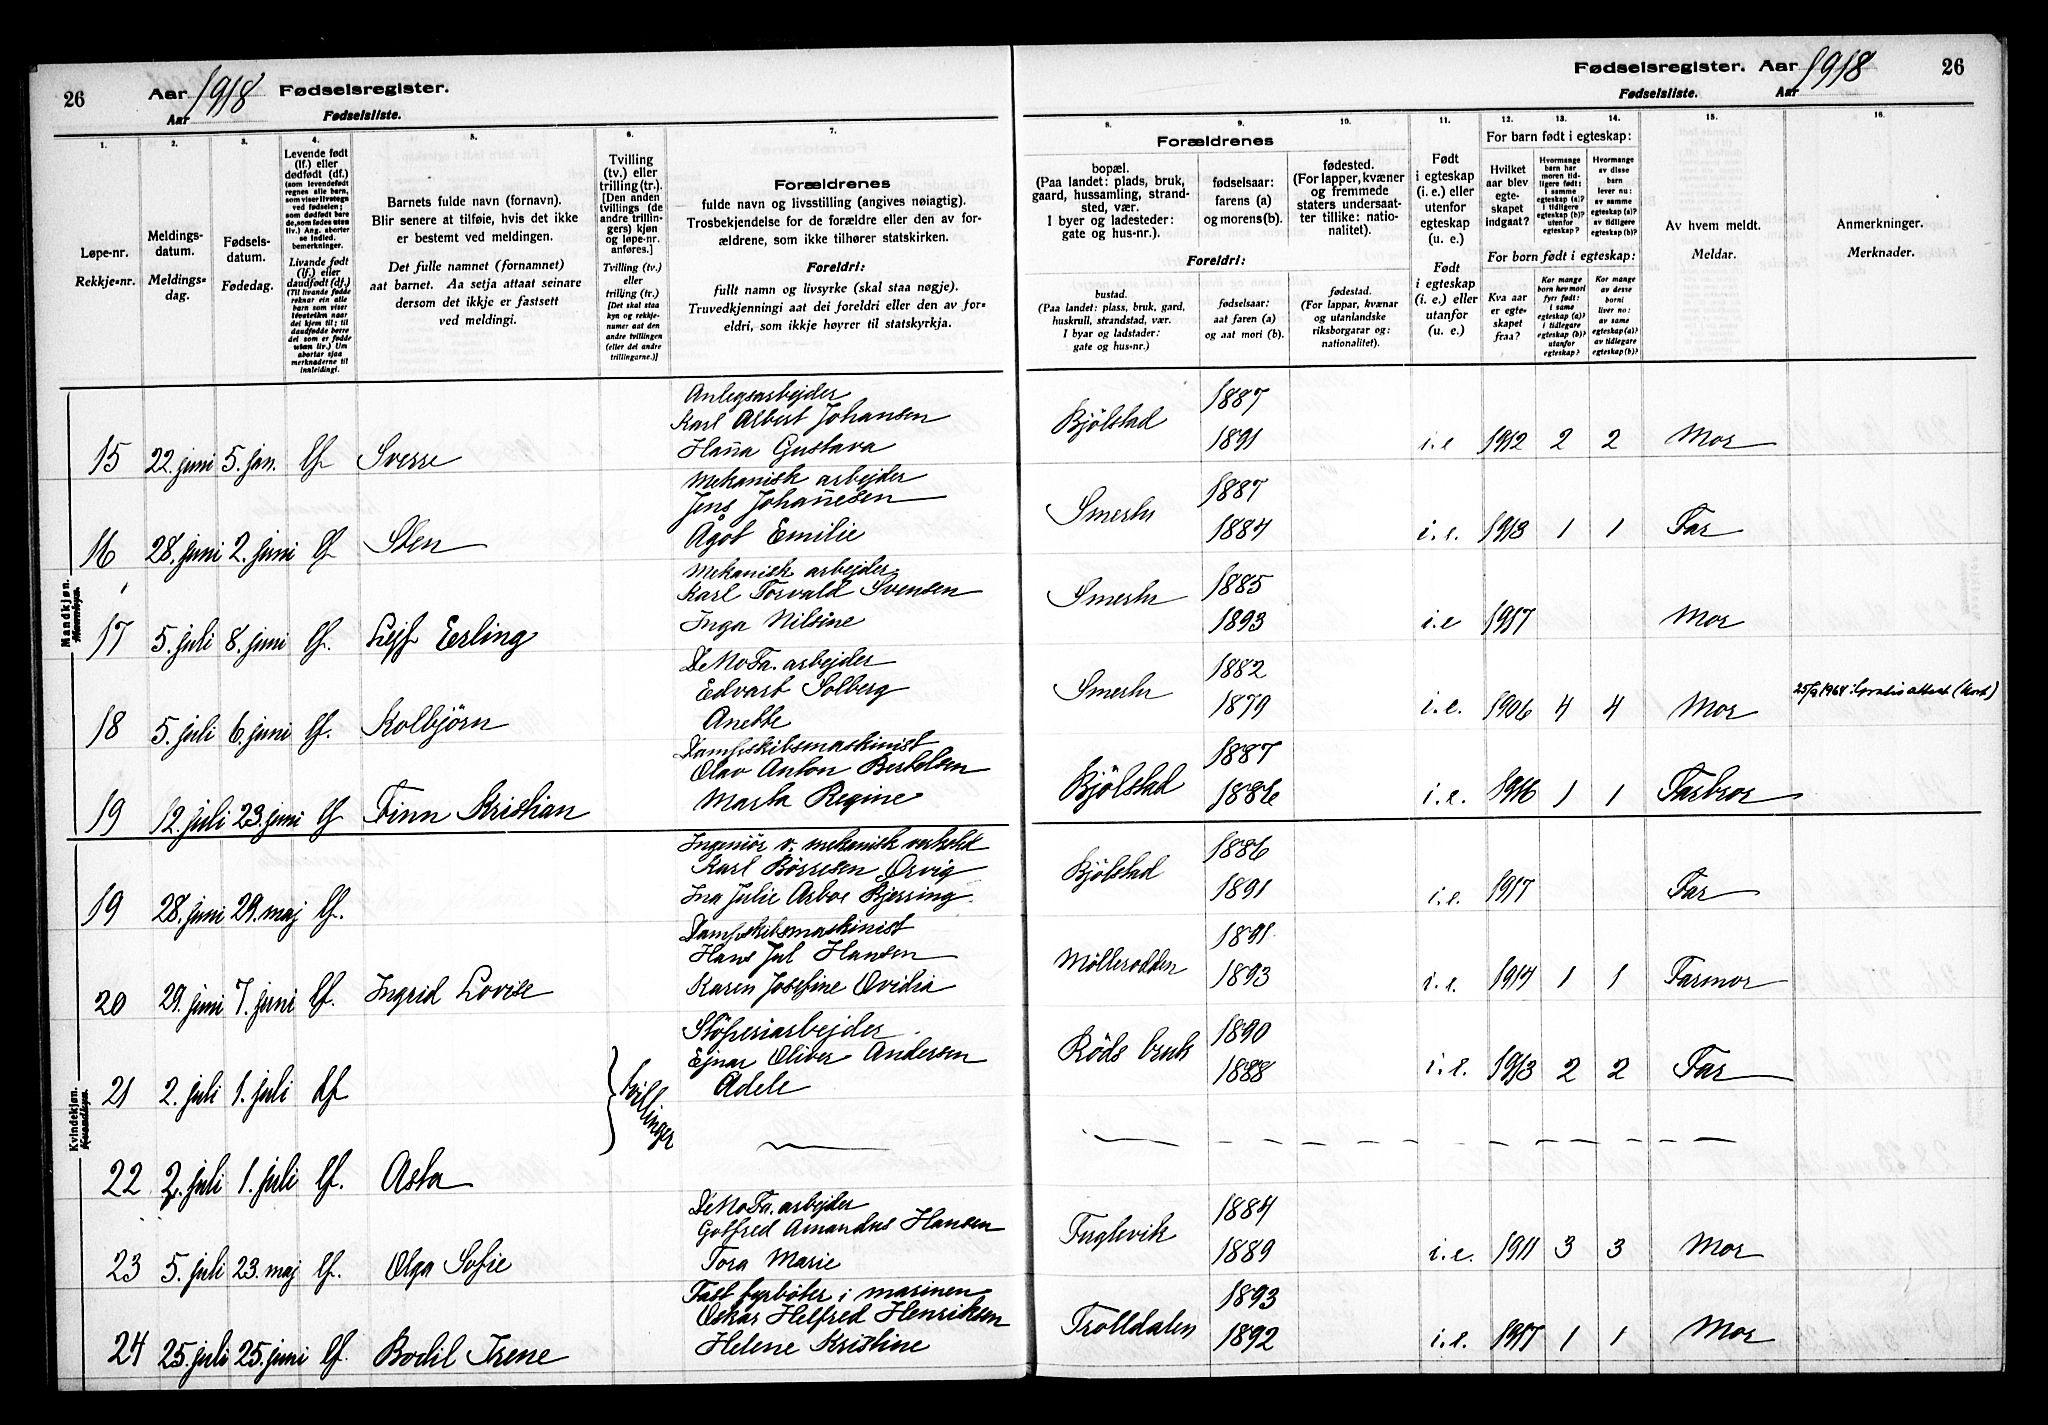 26
Aar 1918 Fødselsregister.
Aar Fødselsliste.
Fødselsregister. Aar 1918 26
Fødselsliste. Aar
1. 2. 3. 4. 5. 6. 7. 8. 9. 10. 11. 12. 13. 14. 15. 16.
Løpe-nr.
Rekkje-nr.
Meldings-
datum.
Meldings-
dag.
Fødsels-
datum.
Fødedag.
Levende født
(lf.) eller
dødfødt (df.)
(som levendefødt
regnes alle barn,
som viser livstegn
ved fødselen;
som dødfødt bare
de, som fødes uten
liv.) Ang. aborter
se indled.
bemerkninger.
Livande født
(lf.) eller
daudfødt (df.)
Barnets fulde navn (fornavn).
Blir senere at tilføie, hvis det ikke
er bestemt ved meldingen.
Det fulle namnet (fornamnet)
aat barnet. Aa setja attaat seinare
dersom det ikkje er fastsett
ved meldingi.
Tvilling
(tv.) eller
trilling (tr.).
[Den anden
tvillings (de
andre trillin-
gers) kjøn
og løpe-nr.
anføres.]
Tvilling (tv.)
eller
trilling (tr.)
[Det skal staa
kyn og rekkje-
numer aat den
andre tvillingen
(eller dei andre
trillingarne.)]
Forældrenes
fulde navn og livsstilling (angives nøiagtig).
Trosbekjendelse for de forældre eller den av for-
ældrene, som ikke tilhører statskirken.
Foreldri:
fullt namn og livsyrke (skal staa nøgje).
Truvedkjenningi aat dei foreldri eller den av for-
eldri, som ikkje høyrer til statskyrkja.
Forældrenes
bopæl.
(Paa landet: plads, bruk,
gaard, hussamling, strand-
sted, vær.
I byer og ladesteder:
gate og hus-nr.).
fødselsaar:
farens (a)
og morens (b).
fødested.
(For lapper, kvæner
og fremmede
staters undersaat-
ter tillike: natio-
nalitet).
Foreldri:
bustad.
(Paa landet: plass, bruk, gard,
huskrull, strandstad, vær.
I byar og ladstader:
gate og hus-nr.)
fødselsaar:
aat faren (a)
og aat mori (b).
fødestad.
(For lappar, kvænar
og utanlandske
riksborgarar og:
nationalitet).
Født
i egteskap
(i. e.) eller
utenfor
egteskap
(u. e.)
Født
i egteskap
(i. e.) eller
utanfor
(u. e.)
For barn født i egteskap:
Hvilket
aar blev
egte-
skapet
indgaat?
Hvormange
barn har
moren tid-
ligere født:
i samme
egteskap (a)?
i tidligere
egteskap (b)?
utenfor
egteskap?
Hvormange
av disse
barn
lever nu:
av samme
egteskap (a)?
av tidligere
egteskap (b)?
For born født i egteskap:
Kva aar
er egte-
skapet
fraa?
Kor mange
born hev mori
fyrr født:
i same
egteskap (a)?
i tidlegare
egteskap (b)?
utanfor
egteskap?
Kor mange
av desse
borni
liver no:
av same
egteskap (a)?
av tidlegare
egteskap (b)?
Av hvem meldt.
Meldar.
Anmerkninger.
Merknader.
Mandkjøn.
Mannkyn.
Anlegsarbejder
Karl Albert Johansen
15 22. juni 5. jan. lf. Sverre Hanna Gustava Bjölstad 1887 1891 i.e 1912 2 2 Mor
Mekanisk arbejder
Jens Johannesen
16 28. juni 2. juni lf Sten Ågot Emilie 1887 1884 i.e. 1913 1 1 Far
Mekanisk arbejder
Karl Torvald Svensen
17 5. juli 8. juni lf. Lejf Erling Inga Nilsine 1885 1893 i.e 1917 Mor
DeNoFa. arbejder
Edvart Solberg
18 5. juli 6. juni lf. Kolbjörn Anette 1882 1879 i.e. 1906 4 4 Mor
Dampskibsmaskinist
Olav Anton Bertelsen
19 12. juli 23. juni lf Finn Kristian Marta Regine Bjölstad 1887 1886 i.e. 1916 1 1 Farbror
Kvindekjøn.
Kvendkyn.
Ingeniör v. mekanisk verksted
Karl Börresen Örvig
19 28. juni 29. maj lf. Ina Julie Arboe Bjerring. Bjölstad 1886 1891 i.e. 1917 Far
Dampskibsmaskinist
Hans Jul Hansen
20 29. juni 7. juni lf. Ingrid Lovise Karen Josefine Ovidia Möllerodden 1891 1893 i.e. 1914 1 1 Farmor
Stöperiarbejder
Ejnar Oliver Andersen
21 2. juli 1. juli df tvillinger Adele Röds bruk 1890 1888 i.e. 1913 2 2 Far
22 2. juli 1. juli lf. Asta — — — — — — — — —
DeNoFa. arbejder
Gotfred Amandus Hansen
23 5. juli 23. maj lf. Olga Sofie Tora Marie Fuglevik 1884 1889 i.e. 1911 3 3 Mor
Fast fyrböter i marinen
Oskar Helfred Henriksen
24 25. juli 25. juni lf. Bodil Irene Helene Kristine Trolldalen 1893 1892 i.e. 1917 1 1 Mor